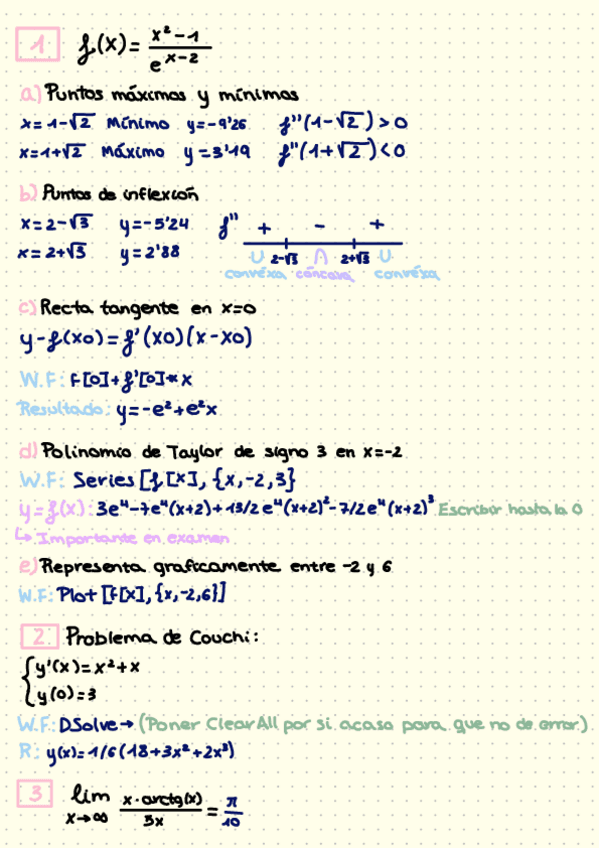 1 f(x) = x² - 1 / e^(x-2)
a) Puntos máximos y mínimos
x = 1-√2 Mínimo y = -9'26 f''(1-√2) > 0
x = 1+√2 Máximo y = 3'19 f''(1+√2) < 0
b) Puntos de inflexión
x = 2-√3 y = -5'24 f'' + - +
x = 2+√3 y = 2'88 ∪ 2-√3 ∩ 2+√3 ∪
convéxa cóncava convéxa
c) Recta tangente en x=0
y - f(x0) = f'(x0)(x - x0)
W.F: f[0]+f'[0]*x
Resultado: y = -e² + e²x
d) Polinomio de Taylor de signo 3 en x=-2
W.F: Series [f[x], {x,-2,3}
y = f(x): 3e⁴-7e⁴(x+2)+13/2e⁴(x+2)²-7/2e⁴(x+2)³ Escribir hasta la 0
↳ Importante en examen
e) Representa graficamente entre -2 y 6
W.F: Plot [f[x],{x,-2,6}]
2. Problema de Couchi:
{ y'(x) = x² + x
y(0) = 3
W.F: DSolve → (Poner ClearAll por si acaso para que no de error)
R: y(x) = 1/6 (18+3x²+2x³)
3 lim x→∞ x·arctg(x) / 5x = π / 10